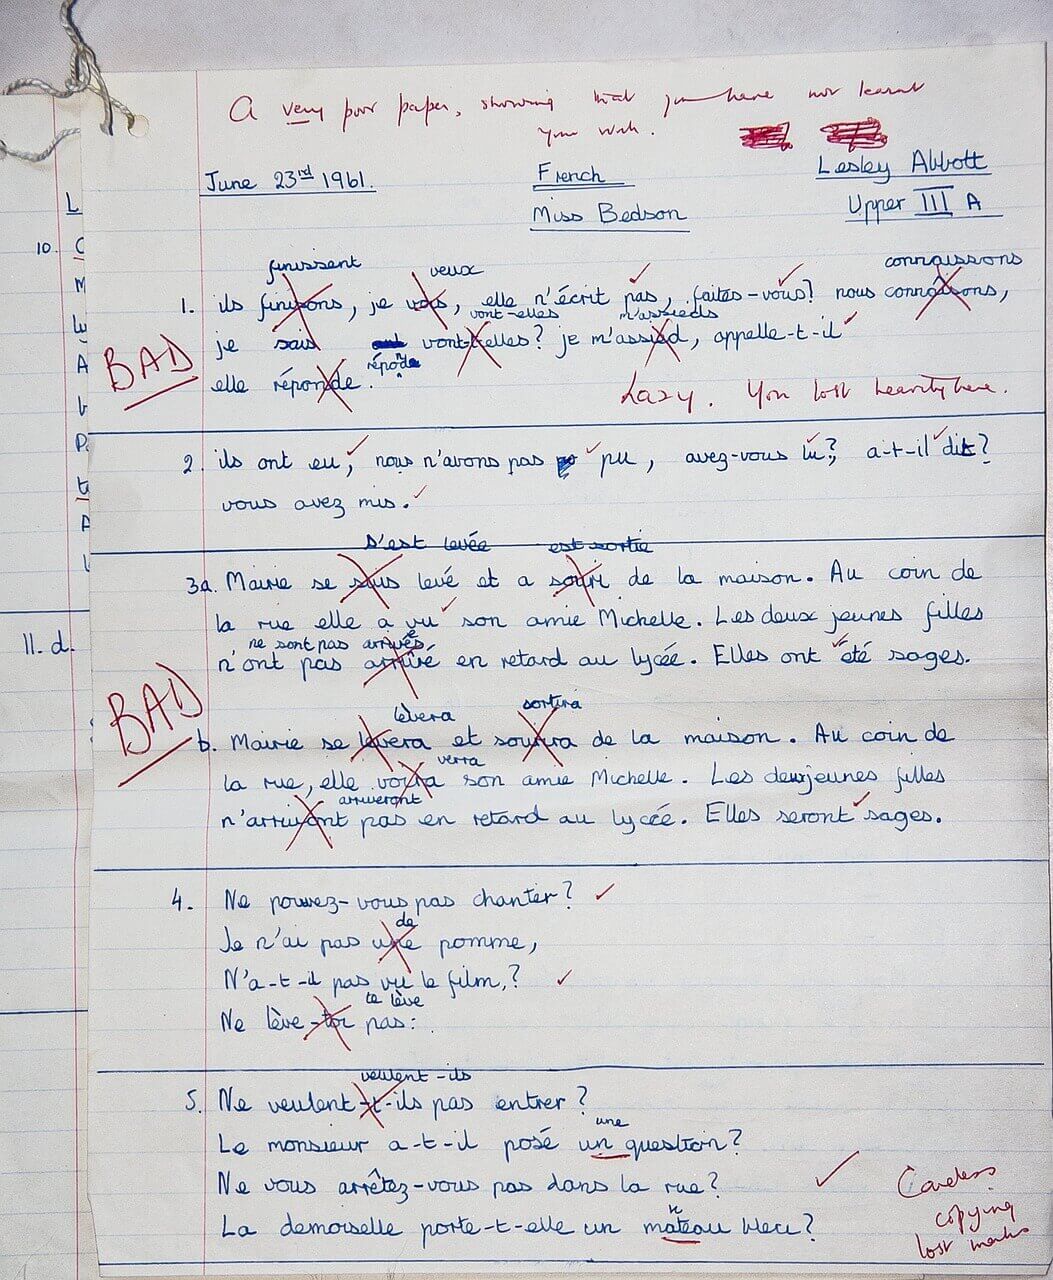 A very poor paper, showing that you have not learnt
your work.
June 23rd 1961. French Lesley Abbott
Miss Bedson Upper III A
finissent veux connaissons
1. ils finisons, je vois, elle n'écrit pas, faites-vous? nous connaisons,
vont-elles m'assieds
je sais vont-t-elles? je m'assied, appelle-t-il
BAD
réponde
elle réponde.
Lazy. You lost heavily here.
2. ils ont eu, nous n'avons pas pu, avez-vous lu?, a-t-il dit?
vous avez mis.
s'est levée est sortie
3a. Mairie se suis levé et a souri de la maison. Au coin de
la rue elle a vu son amie Michelle. Les deux jeunes filles
ne sont pas arrivées
n'ont pas arrivé en retard au lycée. Elles ont été sages.
BAD
lèvera sortira
b. Mairie se levera et sourira de la maison. Au coin de
verra
la rue, elle voira son amie Michelle. Les deux jeunes filles
arriveront
n'arrivont pas en retard au lycée. Elles seront sages.
4. Ne pouvez-vous pas chanter?
de
Je n'ai pas une pomme,
N'a-t-il pas vu le film,?
te lève
Ne lève-toi pas:
veulent-ils
5. Ne veulent-t-ils pas entrer?
une
Le monsieur a-t-il posé un question?
Ne vous arrêtez-vous pas dans la rue?
n
La demoiselle porte-t-elle un mateau bleu?
Careless
copying
lost marks
10.
11. d.